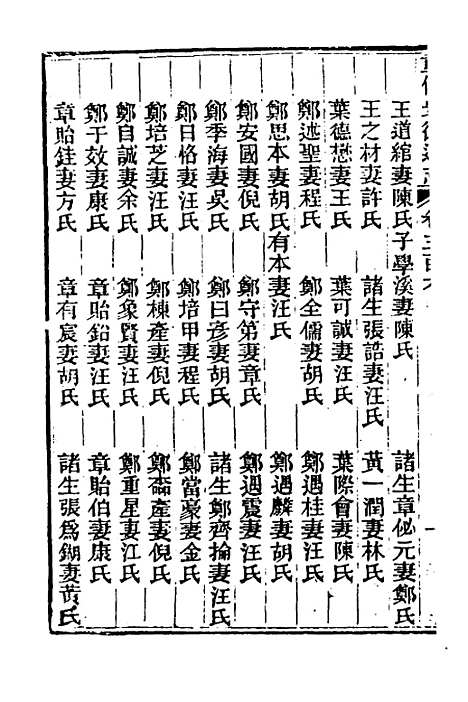 王道綰妻陳氏子學溪妻陳氏 諸生章佖元妻鄭氏
王之材妻許氏 諸生張誥妻汪氏 黃一潤妻林氏
葉德懋妻王氏 葉可誠妻汪氏 葉際會妻陳氏
鄭述聖妻程氏 鄭全儒妻胡氏 鄭遇桂妻汪氏
鄭思本妻胡氏有本妻汪氏 鄭遇麟妻胡氏
鄭安國妻倪氏 鄭守第妻章氏 鄭遇霞妻汪氏
鄭季海妻吳氏 鄭曰彥妻胡氏 諸生鄭齊掄妻汪氏
鄭日恪妻汪氏 鄭培甲妻程氏 鄭當豪妻金氏
鄭培芝妻汪氏 鄭棟產妻倪氏 鄭齋產妻倪氏
鄭自誠妻余氏 鄭象賢妻汪氏 鄭重星妻江氏
鄭于效妻康氏 章貽鉛妻汪氏 章貽伯妻康氏
章貽銓妻方氏 章有宸妻胡氏 諸生張為鋤妻黃氏